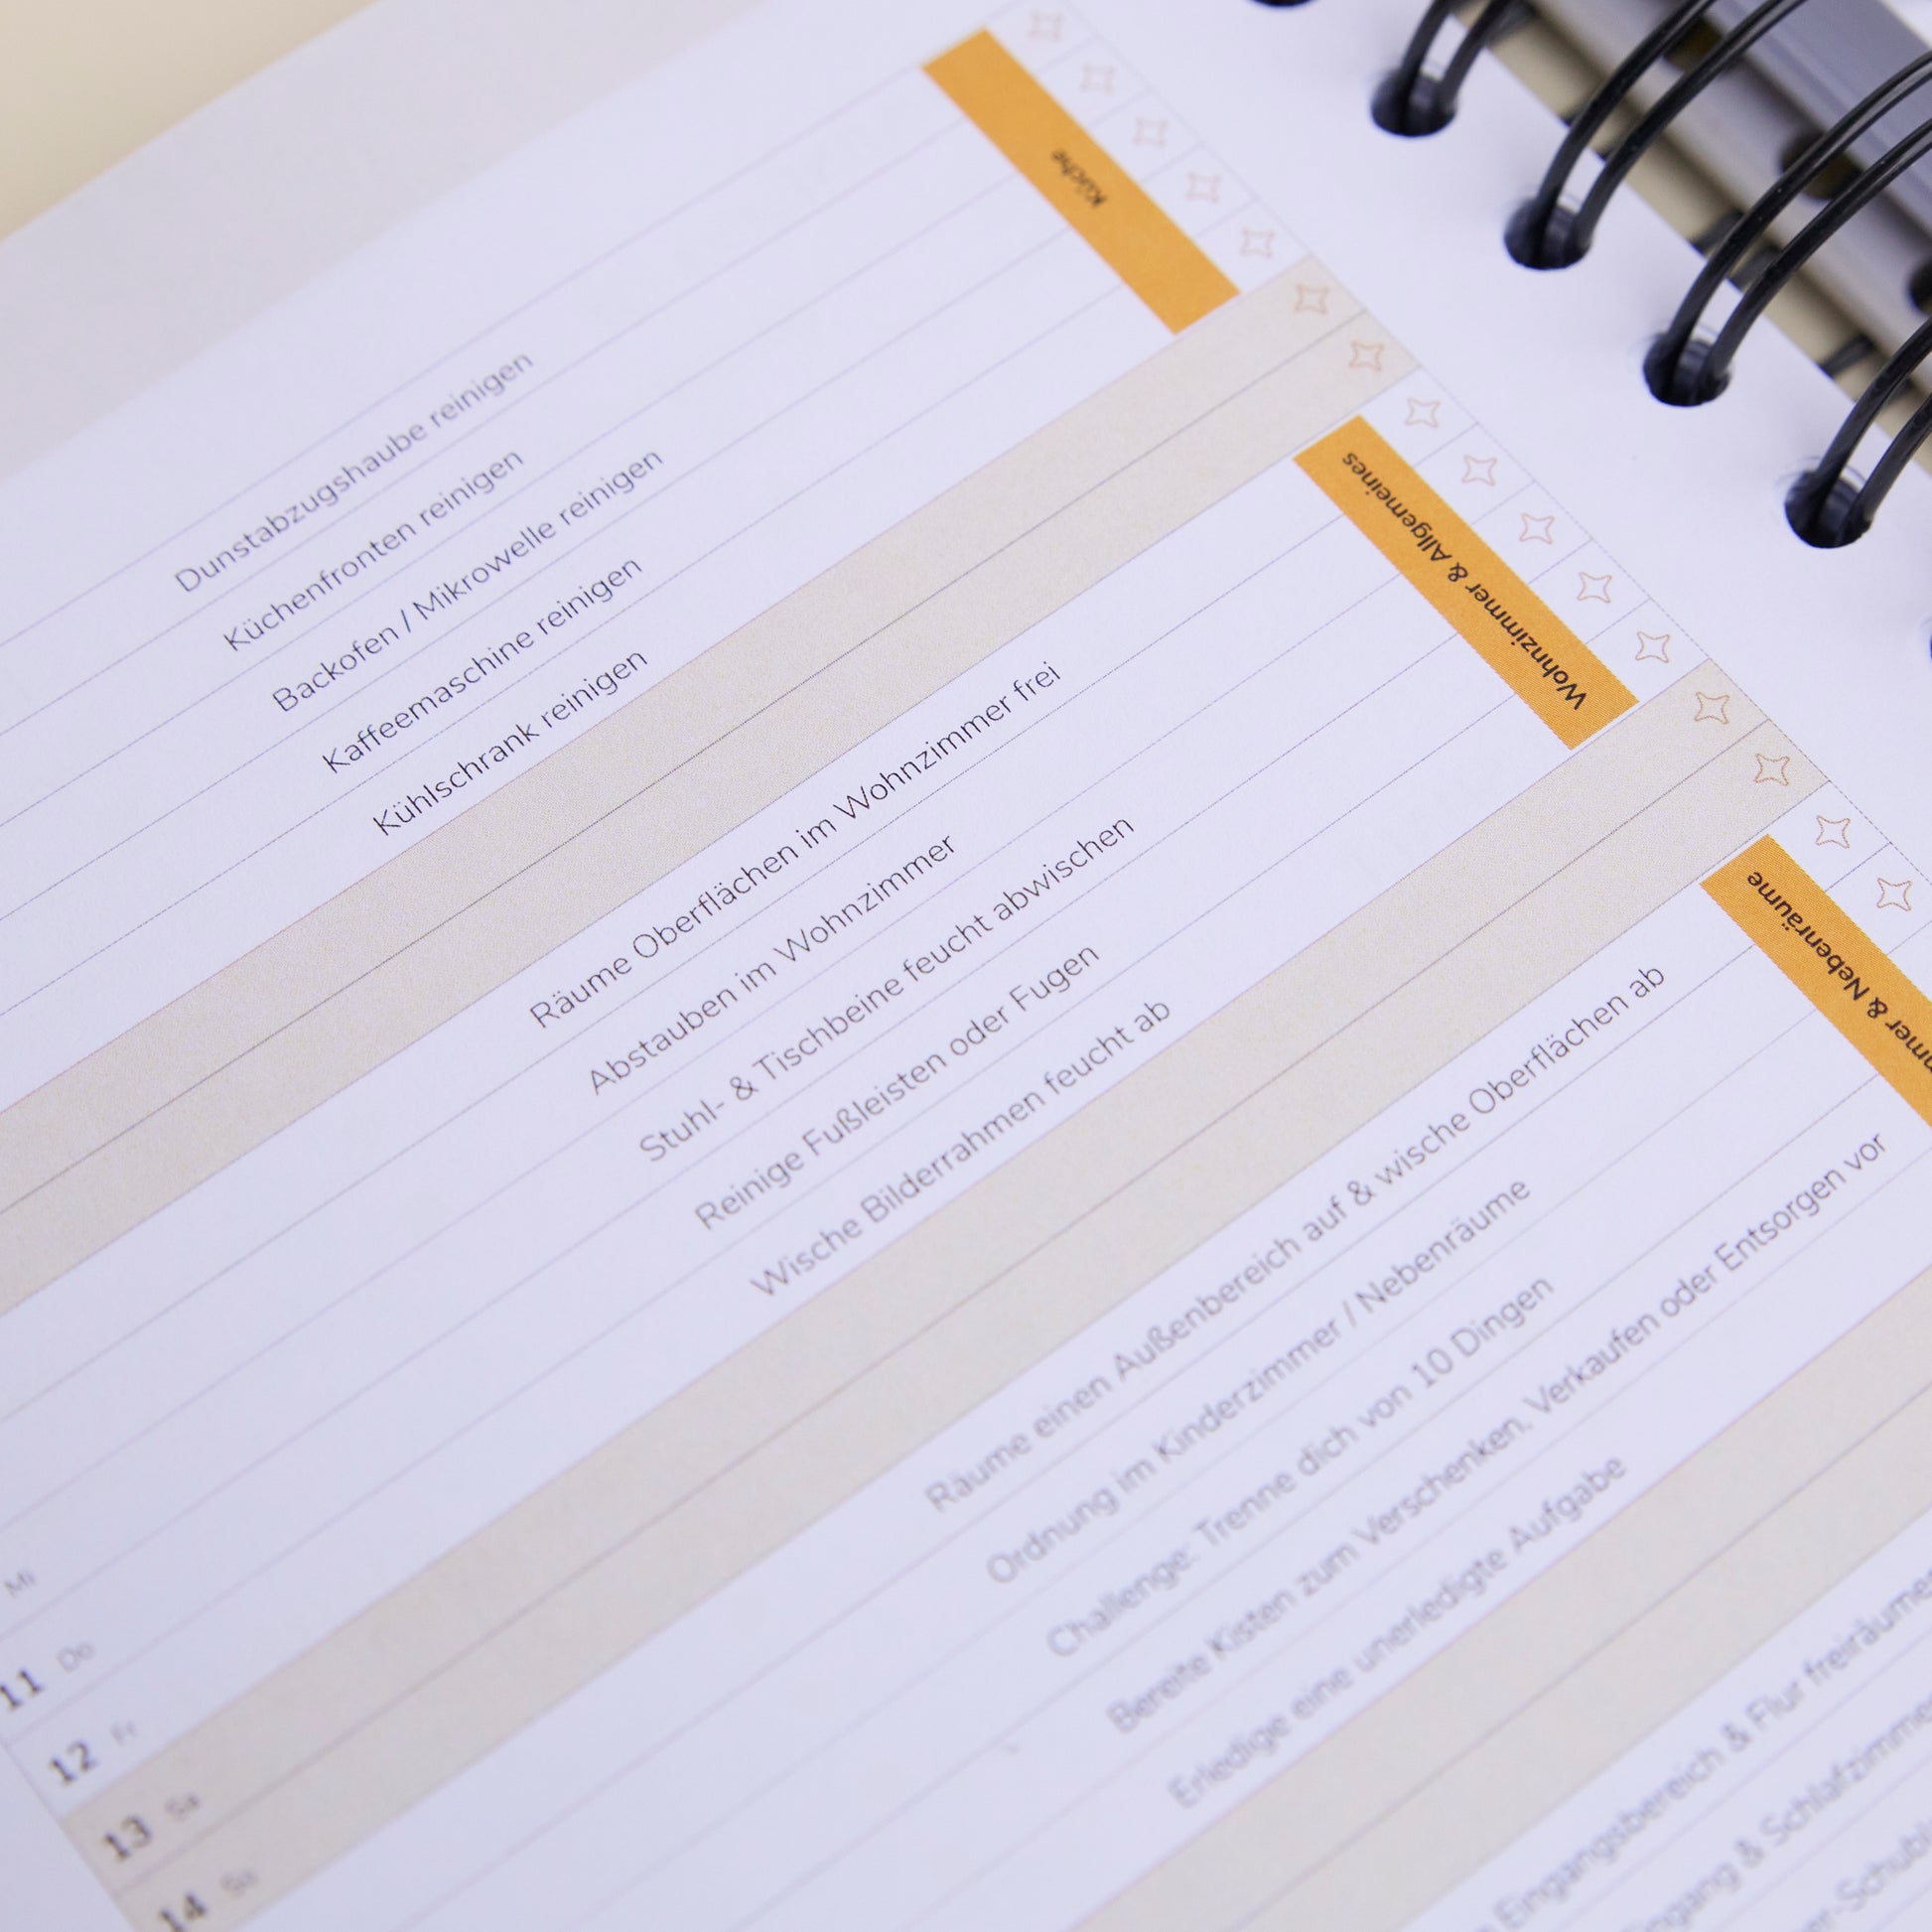 Küche
Dunstabzugshaube reinigen
Küchenfronten reinigen
Backofen / Mikrowelle reinigen
Kaffeemaschine reinigen
Kühlschrank reinigen
Wohnzimmer & Allgemeines
Räume Oberflächen im Wohnzimmer frei
Abstauben im Wohnzimmer
Stuhl- & Tischbeine feucht abwischen
Reinige Fußleisten oder Fugen
Wische Bilderrahmen feucht ab
& Nebenräume
Räume einen Außenbereich auf & wische Oberflächen ab
Ordnung im Kinderzimmer / Nebenräume
Challenge: Trenne dich von 10 Dingen
Bereite Kisten zum Verschenken, Verkaufen oder Entsorgen vor
Erledige eine unerledigte Aufgabe
Eingangsbereich & Flur
Mi
11 Do
12 Fr
13 Sa
14 So